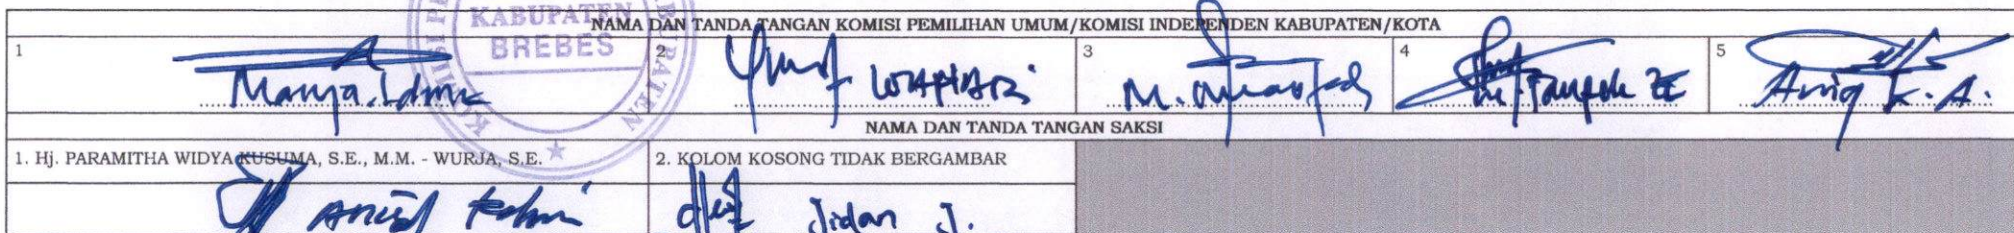 KABUPATEN
BREBES
NAMA DAN TANDA TANGAN KOMISI PEMILIHAN UMUM/KOMISI INDEPENDEN KABUPATEN/KOTA
1 2 3 4 5
WAHYADI M. Aniq K. A.
NAMA DAN TANDA TANGAN SAKSI
1. Hj. PARAMITHA WIDYA KUSUMA, S.E., M.M. - WURJA, S.E. 2. KOLOM KOSONG TIDAK BERGAMBAR
Jidan J.